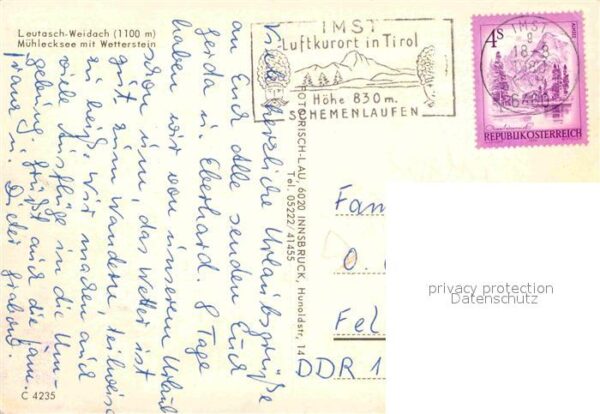 Leutasch-Weidach (1100 m)
Mühlecksee mit Wetterstein
IMST
Luftkurort in Tirol
Höhe 830 m.
SCHEMENLAUFEN
IMST
18-8
4S
REPUBLIK ÖSTERREICH
Viele herzliche Urlaubsgrüße
an Euch Alle senden Euch
Gerda u. Eberhard. 8 Tage
haben wir von unserem Urlaub
schon um, das Wetter ist
gut zum Wandern, teilweise
zu heiß. Wir machen auch
viele Ausflüge in die Um-
gebung. Grüßt auch die Fam.
u. Dieter
FOTO RISCH-LAU, 6020 INNSBRUCK, Hunoldstr. 14
Tel. 05222/41455
Fam
O.
Fel
DDR 1
privacy protection
Datenschutz
C 4235